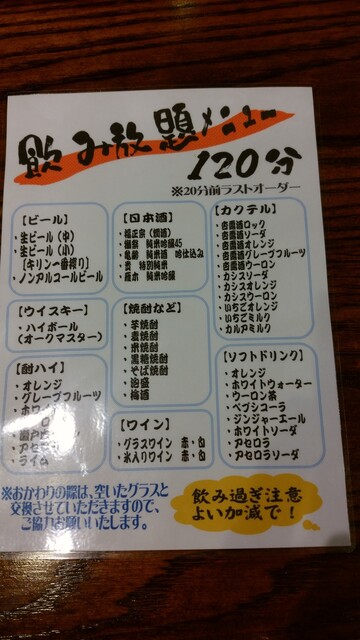 飲み放題メニュー
120分
※20分前ラストオーダー
【ビール】
・生ビール（中）
・生ビール（小）
［キリン一番搾り］
・ノンアルコールビール
【ウイスキー】
・ハイボール
（オークマスター）
【酎ハイ】
・オレンジ
・グレープフルーツ
・ライム
【日本酒】
・福正宗（燗酒）
・獺祭 純米吟醸45
・亀齢 純米酒 吟仕込み
純米吟醸
【焼酎など】
・芋焼酎
・麦焼酎
・米焼酎
・黒糖焼酎
・そば焼酎
・泡盛
・梅酒
【ワイン】
・グラスワイン 赤・白
・氷入りワイン 赤・白
【カクテル】
・杏露酒ロック
・杏露酒ソーダ
・杏露酒オレンジ
・杏露酒グレープフルーツ
・杏露酒ウーロン
・カシスソーダ
・カシスオレンジ
・カシスウーロン
・いちごオレンジ
・いちごミルク
・カルアミルク
【ソフトドリンク】
・オレンジ
・ホワイトウォーター
・ウーロン茶
・ペプシコーラ
・ジンジャーエール
・ホワイトソーダ
・アセロラ
・アセロラソーダ
※おかわりの際は、空いたグラスと
交換させていただきますので、
ご協力お願いいたします。
飲み過ぎ注意
よい加減で！